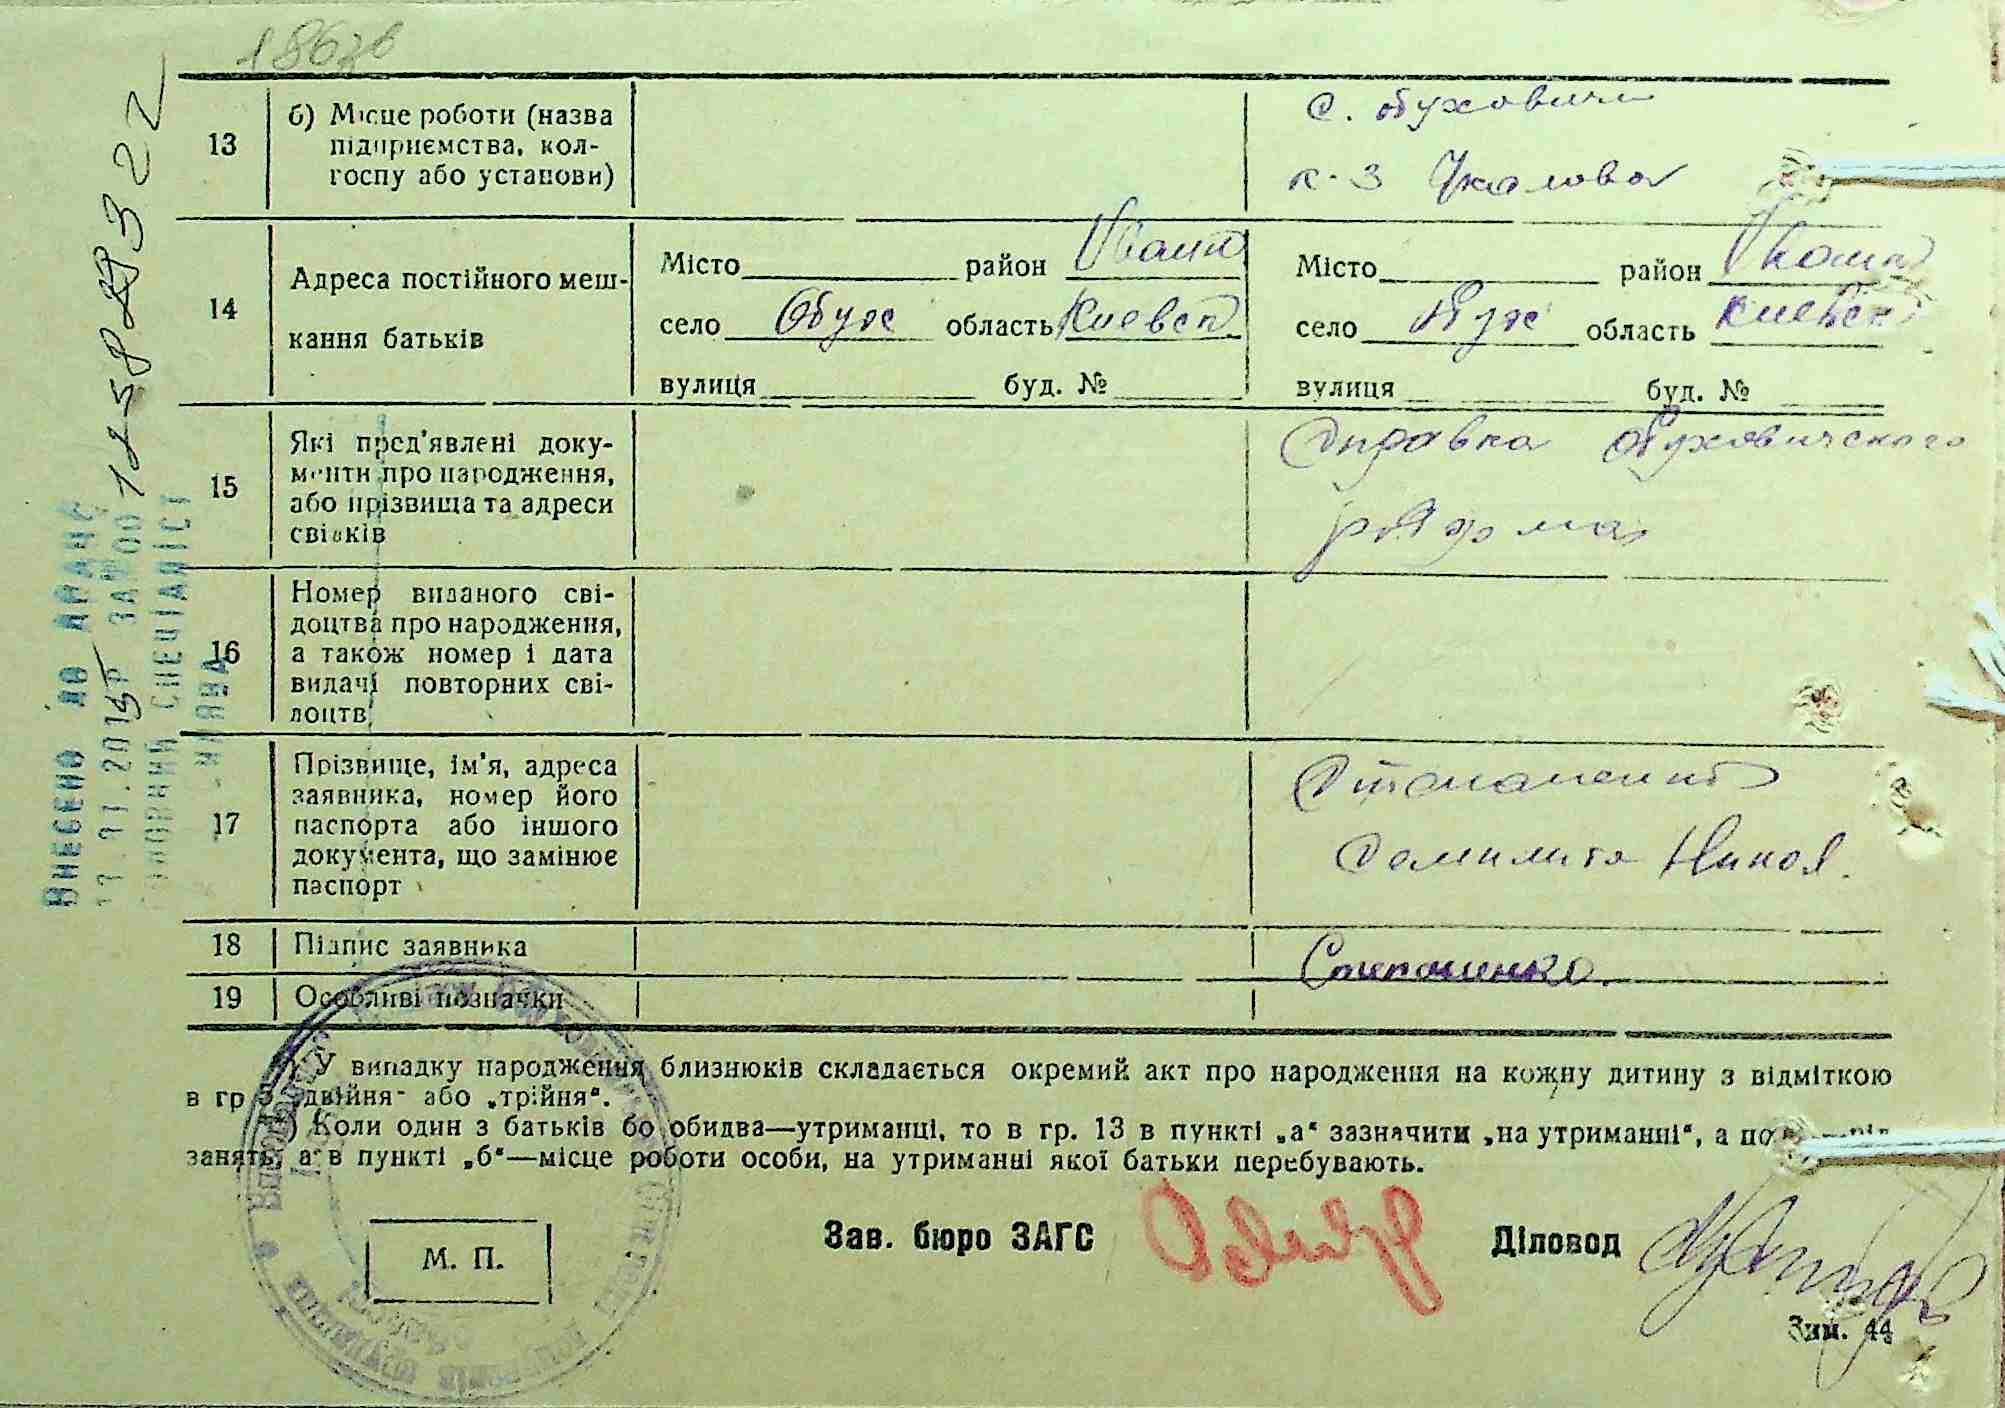 186зв
13
б) Місце роботи (назва
підприємства, кол-
госпу або установи)
с. Обуховичи
к-з Чкалова
14
Адреса постійного меш-
кання батьків
Місто район Иванк
село Обух область Киевск
вулиця буд. №
Місто район Иванк
село Обух область Киевск
вулиця буд. №
15
Які пред'явлені доку-
менти про народження,
або прізвища та адреси
свідків
Справка Обуховичского
16
Номер виданого сві-
доцтва про народження,
а також номер і дата
видачі повторних сві-
доцтв
17
Прізвище, ім'я, адреса
заявника, номер його
паспорта або іншого
документа, що замінює
паспорт
Степаненко
Никол.
18 Підпис заявника
Степаненко
19 Особливі позначки
) У випадку народження близнюків складається окремий акт про народження на кожну дитину з відміткою
в гр „двійня“ або „трійня“.
) Коли один з батьків бо обидва—утриманці, то в гр. 13 в пункті „а“ зазначити „на утриманні“, а по
занять, а в пункті „б“—місце роботи особи, на утриманні якої батьки перебувають.
М. П.
Зав. бюро ЗАГС
Діловод
Зам. 44
ВНЕСЕНО ДО ДРАЦС
ЗА №00
СПЕЦІАЛІСТ